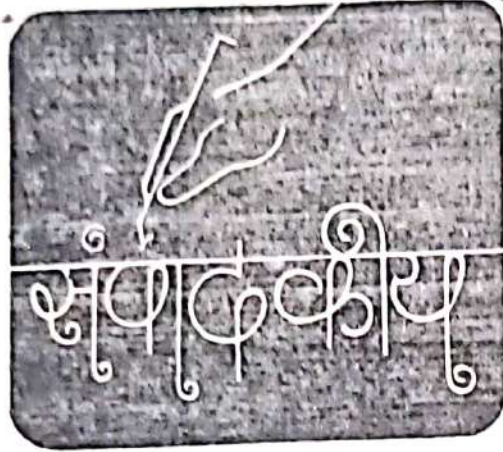 संपादकीय